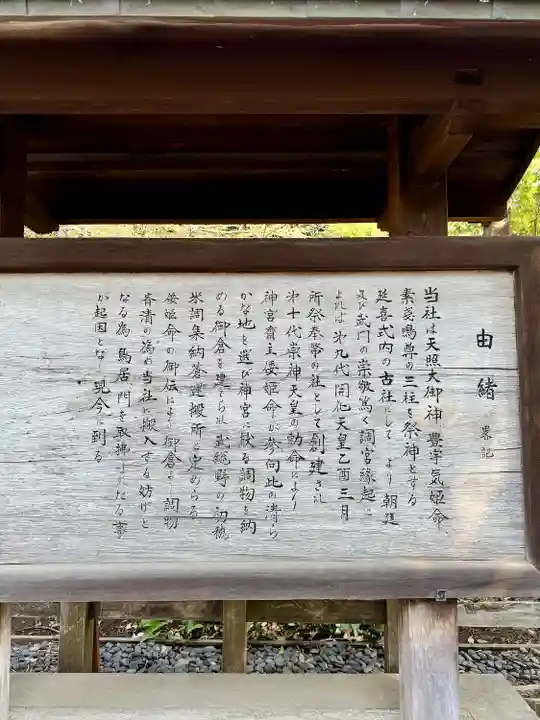 由緒 畧記
当社は天照大御神、豊宇気姫命、
素盞嗚尊の三柱を祭神とする
延喜式内の古社にして より朝廷
及び武門の崇敬篤く調宮縁起に
よれば 第九代開化天皇乙酉三月
所祭奉幣の社として創建され
第十代崇神天皇の勅命により
神宮斎主倭姫命が参向此の清ら
かな地を選び神宮に献る調物を納
める御倉を建てられ武総野の初穂
米調集納蒼運搬所と定めらる
倭姫命の御伝により御倉より調物
斉清の為め当社に搬入する妨げと
なる為、鳥居、門を取拂ひたる事
が起因となり現今に到る